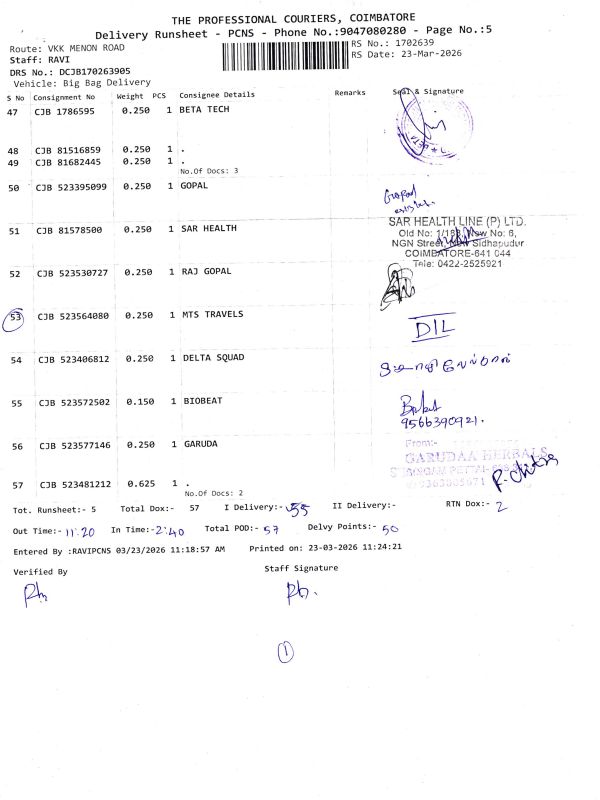 THE PROFESSIONAL COURIERS, COIMBATORE
Delivery Runsheet - PCNS - Phone No.:9047080280 - Page No.:5
Route: VKK MENON ROAD RS No.: 1702639
Staff: RAVI RS Date: 23-Mar-2026
DRS No.: DCJB170263905
Vehicle: Big Bag Delivery
S No Consignment No Weight PCS Consignee Details Remarks Seal & Signature
47 CJB 1786595 0.250 1 BETA TECH
48 CJB 81516859 0.250 1 .
49 CJB 81682445 0.250 1 .
No.Of Docs: 3
50 CJB 523395099 0.250 1 GOPAL
Gopal
51 CJB 81578500 0.250 1 SAR HEALTH
SAR HEALTH LINE (P) LTD.
Old No: 1/183, New No: 6,
NGN Street, New Sidhapudur
COIMBATORE-641 044
Tele: 0422-2525921
52 CJB 523530727 0.250 1 RAJ GOPAL
53 CJB 523564080 0.250 1 MTS TRAVELS
DIL
54 CJB 523406812 0.250 1 DELTA SQUAD
55 CJB 523572502 0.150 1 BIOBEAT
9566390921.
56 CJB 523577146 0.250 1 GARUDA
From:-
GARUDAA HERBALS
57 CJB 523481212 0.625 1 .
No.Of Docs: 2
Tot. Runsheet:- 5 Total Dox:- 57 I Delivery:- 55 II Delivery:- RTN Dox:- 2
Out Time:- 11:20 In Time:- 2:40 Total POD:- 57 Delvy Points:- 50
Entered By :RAVIPCNS 03/23/2026 11:18:57 AM Printed on: 23-03-2026 11:24:21
Verified By Staff Signature
1